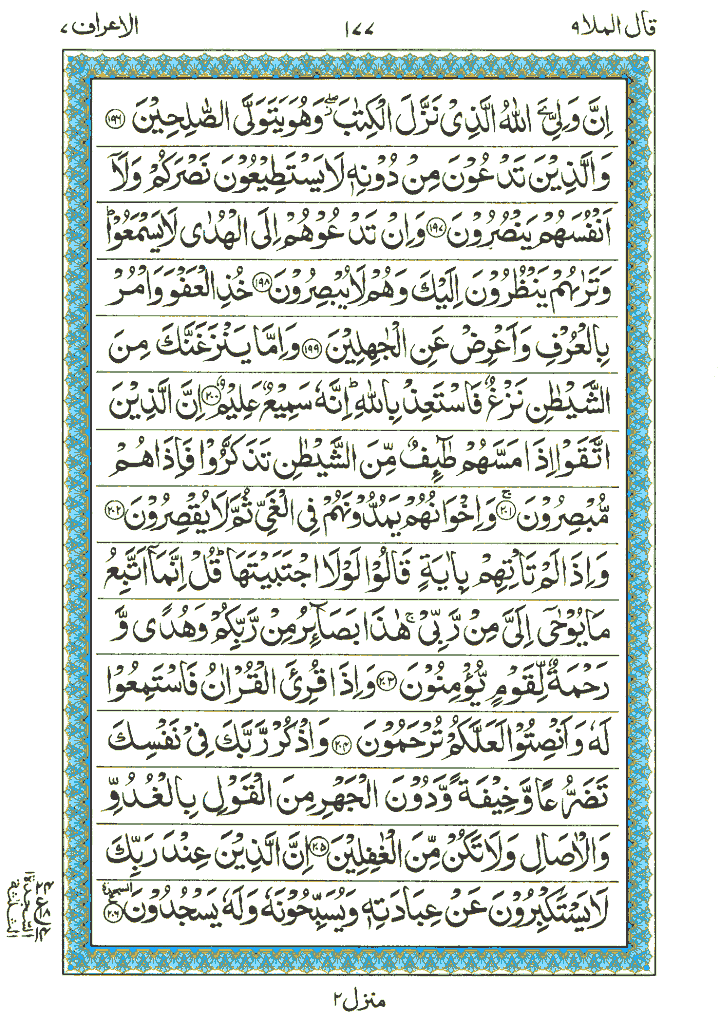 قال الملا ٩ ١٧٧ الاعراف ٧
اِنَّ وَلِیِّۦَ اللّٰهُ الَّذِیْ نَزَّلَ الْكِتٰبَ ۖؗ وَهُوَ یَتَوَلَّی الصّٰلِحِیْنَ ﴿۱۹۶﴾
وَالَّذِیْنَ تَدْعُوْنَ مِنْ دُوْنِهٖ لَا یَسْتَطِیْعُوْنَ نَصْرَكُمْ وَلَاۤ
اَنْفُسَهُمْ یَنْصُرُوْنَ ﴿۱۹۷﴾ وَاِنْ تَدْعُوْهُمْ اِلَی الْهُدٰی لَا یَسْمَعُوْا ؕ
وَتَرٰىهُمْ یَنْظُرُوْنَ اِلَیْكَ وَهُمْ لَا یُبْصِرُوْنَ ﴿۱۹۸﴾ خُذِ الْعَفْوَ وَاْمُرْ
بِالْعُرْفِ وَاَعْرِضْ عَنِ الْجٰهِلِیْنَ ﴿۱۹۹﴾ وَاِمَّا یَنْزَغَنَّكَ مِنَ
الشَّیْطٰنِ نَزْغٌ فَاسْتَعِذْ بِاللّٰهِ ؕ اِنَّهٗ سَمِیْعٌ عَلِیْمٌ ﴿۲۰۰﴾ اِنَّ الَّذِیْنَ
اتَّقَوْا اِذَا مَسَّهُمْ طٰٓىِٕفٌ مِّنَ الشَّیْطٰنِ تَذَكَّرُوْا فَاِذَا هُمْ
مُّبْصِرُوْنَ ﴿۲۰۱﴾ۚ وَاِخْوَانُهُمْ یَمُدُّوْنَهُمْ فِی الْغَیِّ ثُمَّ لَا یُقْصِرُوْنَ ﴿۲۰۲﴾
وَاِذَا لَمْ تَاْتِهِمْ بِاٰیَةٍ قَالُوْا لَوْلَا اجْتَبَیْتَهَا ؕ قُلْ اِنَّمَاۤ اَتَّبِعُ
مَا یُوْحٰۤی اِلَیَّ مِنْ رَّبِّیْ ۚ هٰذَا بَصَآىِٕرُ مِنْ رَّبِّكُمْ وَهُدًی وَّ
رَحْمَةٌ لِّقَوْمٍ یُّؤْمِنُوْنَ ﴿۲۰۳﴾ وَاِذَا قُرِئَ الْقُرْاٰنُ فَاسْتَمِعُوْا
لَهٗ وَاَنْصِتُوْا لَعَلَّكُمْ تُرْحَمُوْنَ ﴿۲۰۴﴾ وَاذْكُرْ رَّبَّكَ فِیْ نَفْسِكَ
تَضَرُّعًا وَّخِیْفَةً وَّدُوْنَ الْجَهْرِ مِنَ الْقَوْلِ بِالْغُدُوِّ
وَالْاٰصَالِ وَلَا تَكُنْ مِّنَ الْغٰفِلِیْنَ ﴿۲۰۵﴾ اِنَّ الَّذِیْنَ عِنْدَ رَبِّكَ
لَا یَسْتَكْبِرُوْنَ عَنْ عِبَادَتِهٖ وَیُسَبِّحُوْنَهٗ وَلَهٗ یَسْجُدُوْنَ ﴿۲۰۶﴾ السجدة
منزل ۲